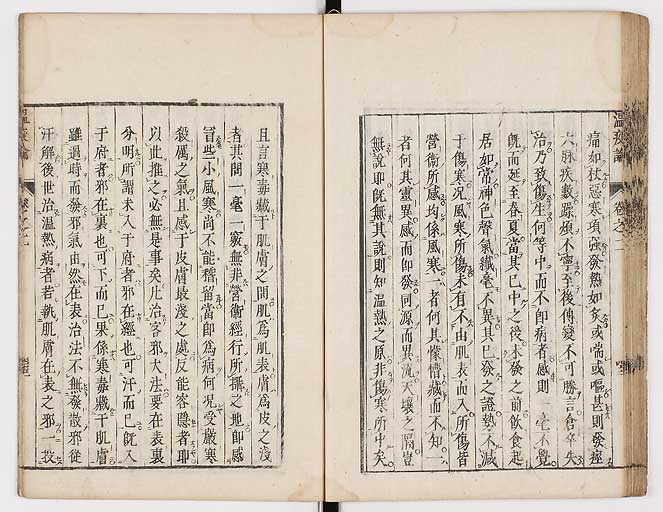 溫疫論
卷之二
痛如杖惡寒項強發熱如炙或喘或嘔甚則發痙
六脉疾數躁煩不寧至後傳變不可勝言倉卒失
治乃致傷生何等中而不即病者感則一毫不覺
既而延至春夏當其已中之後未發之前飲食起
居如常神色聲氣纖毫不異其已發之證熱不減
于傷寒况風寒所傷未有不由肌表而入所傷皆
營衛所感均係風寒一者何其懞懂藏而不知一
者何其靈異感而即發同源而異流天壤之隔豈
無說耶既無其說則知温熱之原非傷寒所中矣
且言寒毒藏于肌膚之間肌爲肌表膚爲皮之淺
者其間一毫一竅無非營衛經行所攝之地即感
冒些小風寒尚不能稽留當即爲病何况受嚴寒
殺厲之氣且感于皮膚最淺之處反能容隱者耶
以此推之必無是事矣凡治客邪大法要在表裏
分明所謂未入于府者邪在經也可汗而已既入
于府者邪在裏也可下而已果係寒毒藏于肌膚
雖過時而發邪氣由然在表治法不無發散邪從
汗解後世治温熱病者若執肌膚在表之邪一投
溫疫論
卷之二